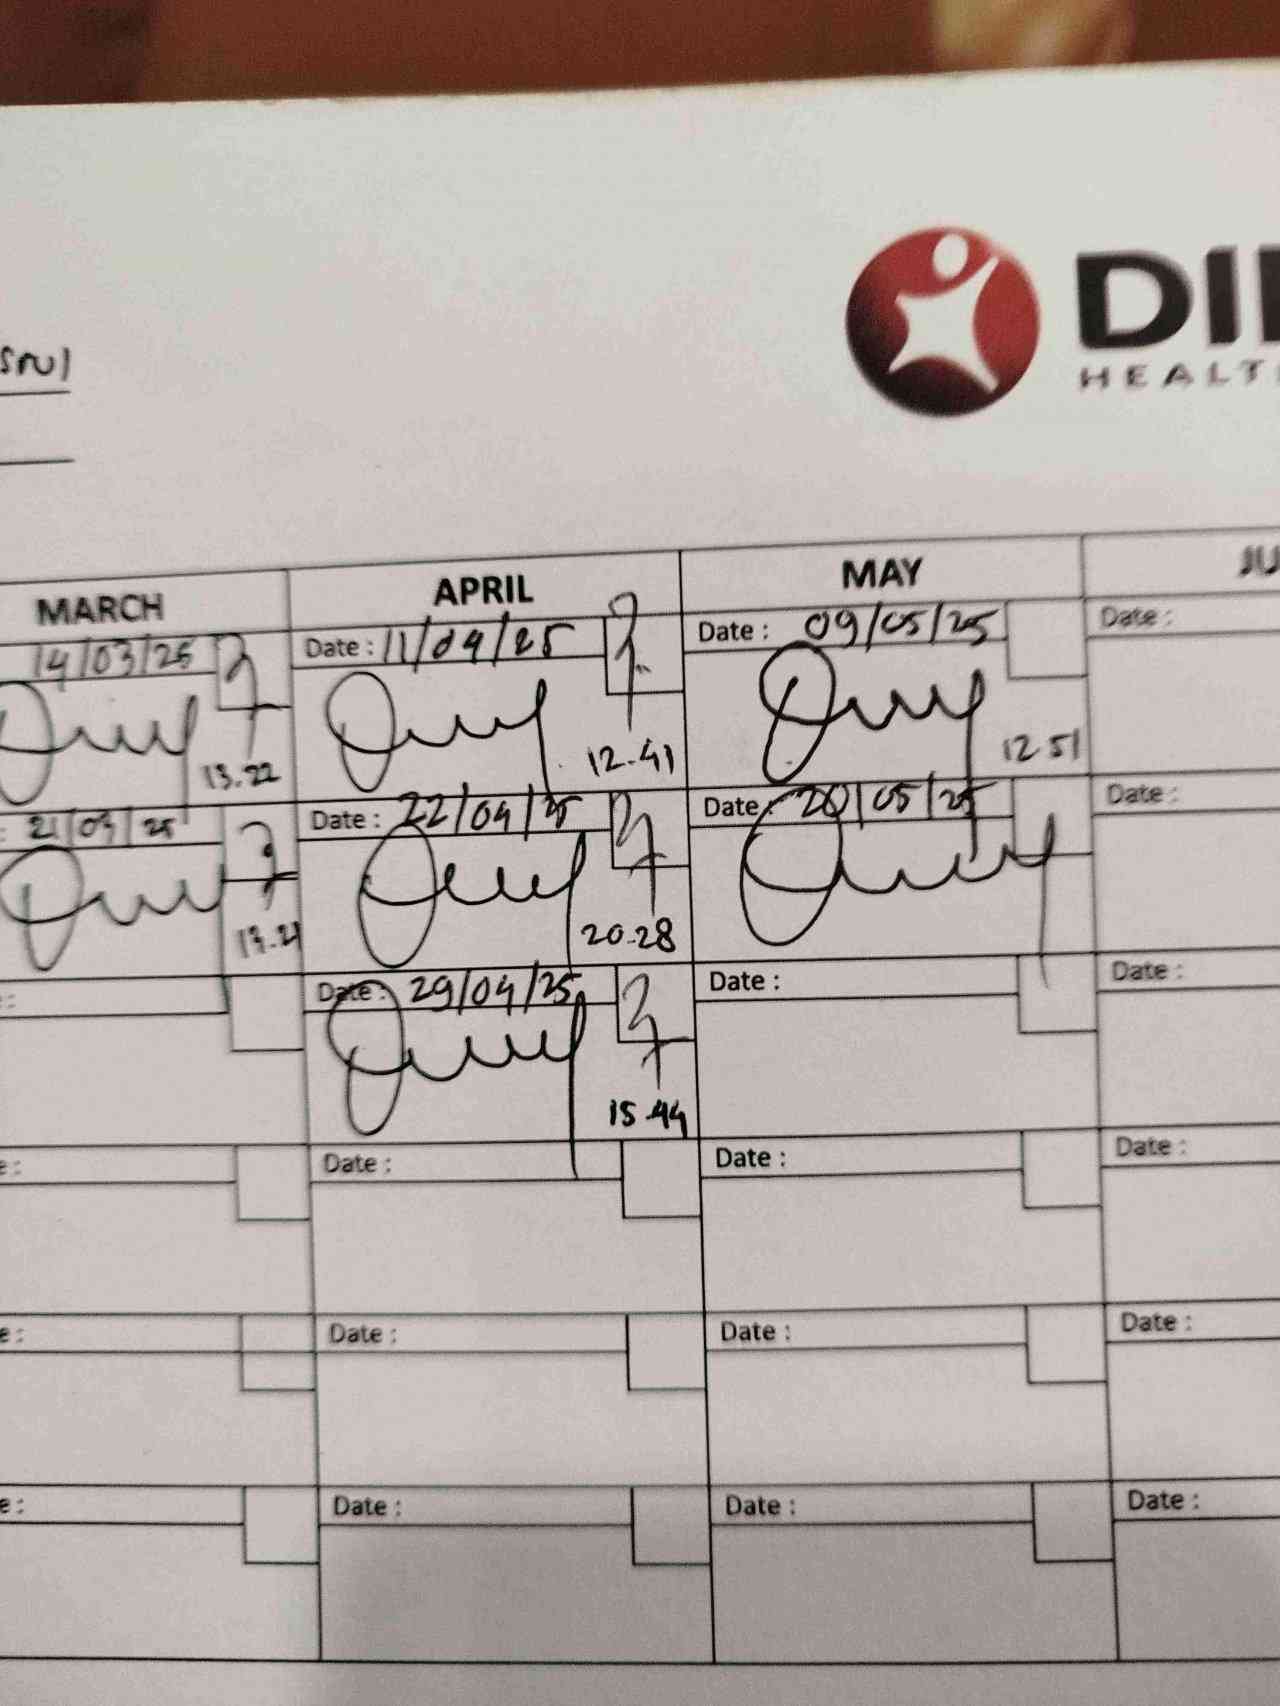 DI
HEALT
MARCH APRIL MAY JU
14/03/25 Date : 11/04/25 Date : 09/05/25 Date :
13.22 12-41 12 51
: 21/03/25 Date : 22/04/25 Date : 20/05/25 Date :
20-28
: Date : 29/04/25 Date : Date :
15.44
e : Date : Date : Date :
e : Date : Date : Date :
e : Date : Date : Date :